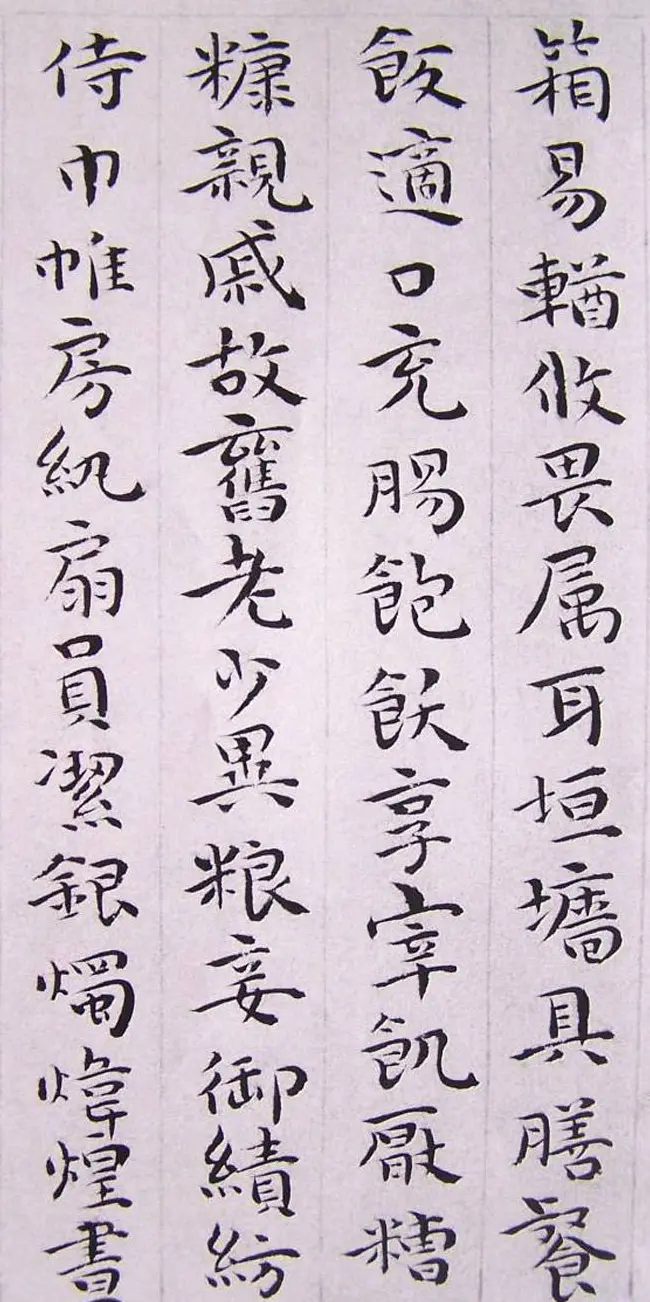 箱易輶攸畏属耳垣墻具膳餐
飯適口充腸飽飫享宰飢厭糟
糠親戚故舊老少異粮妾御績紡
侍巾帷房紈扇員潔銀燭煒煌書